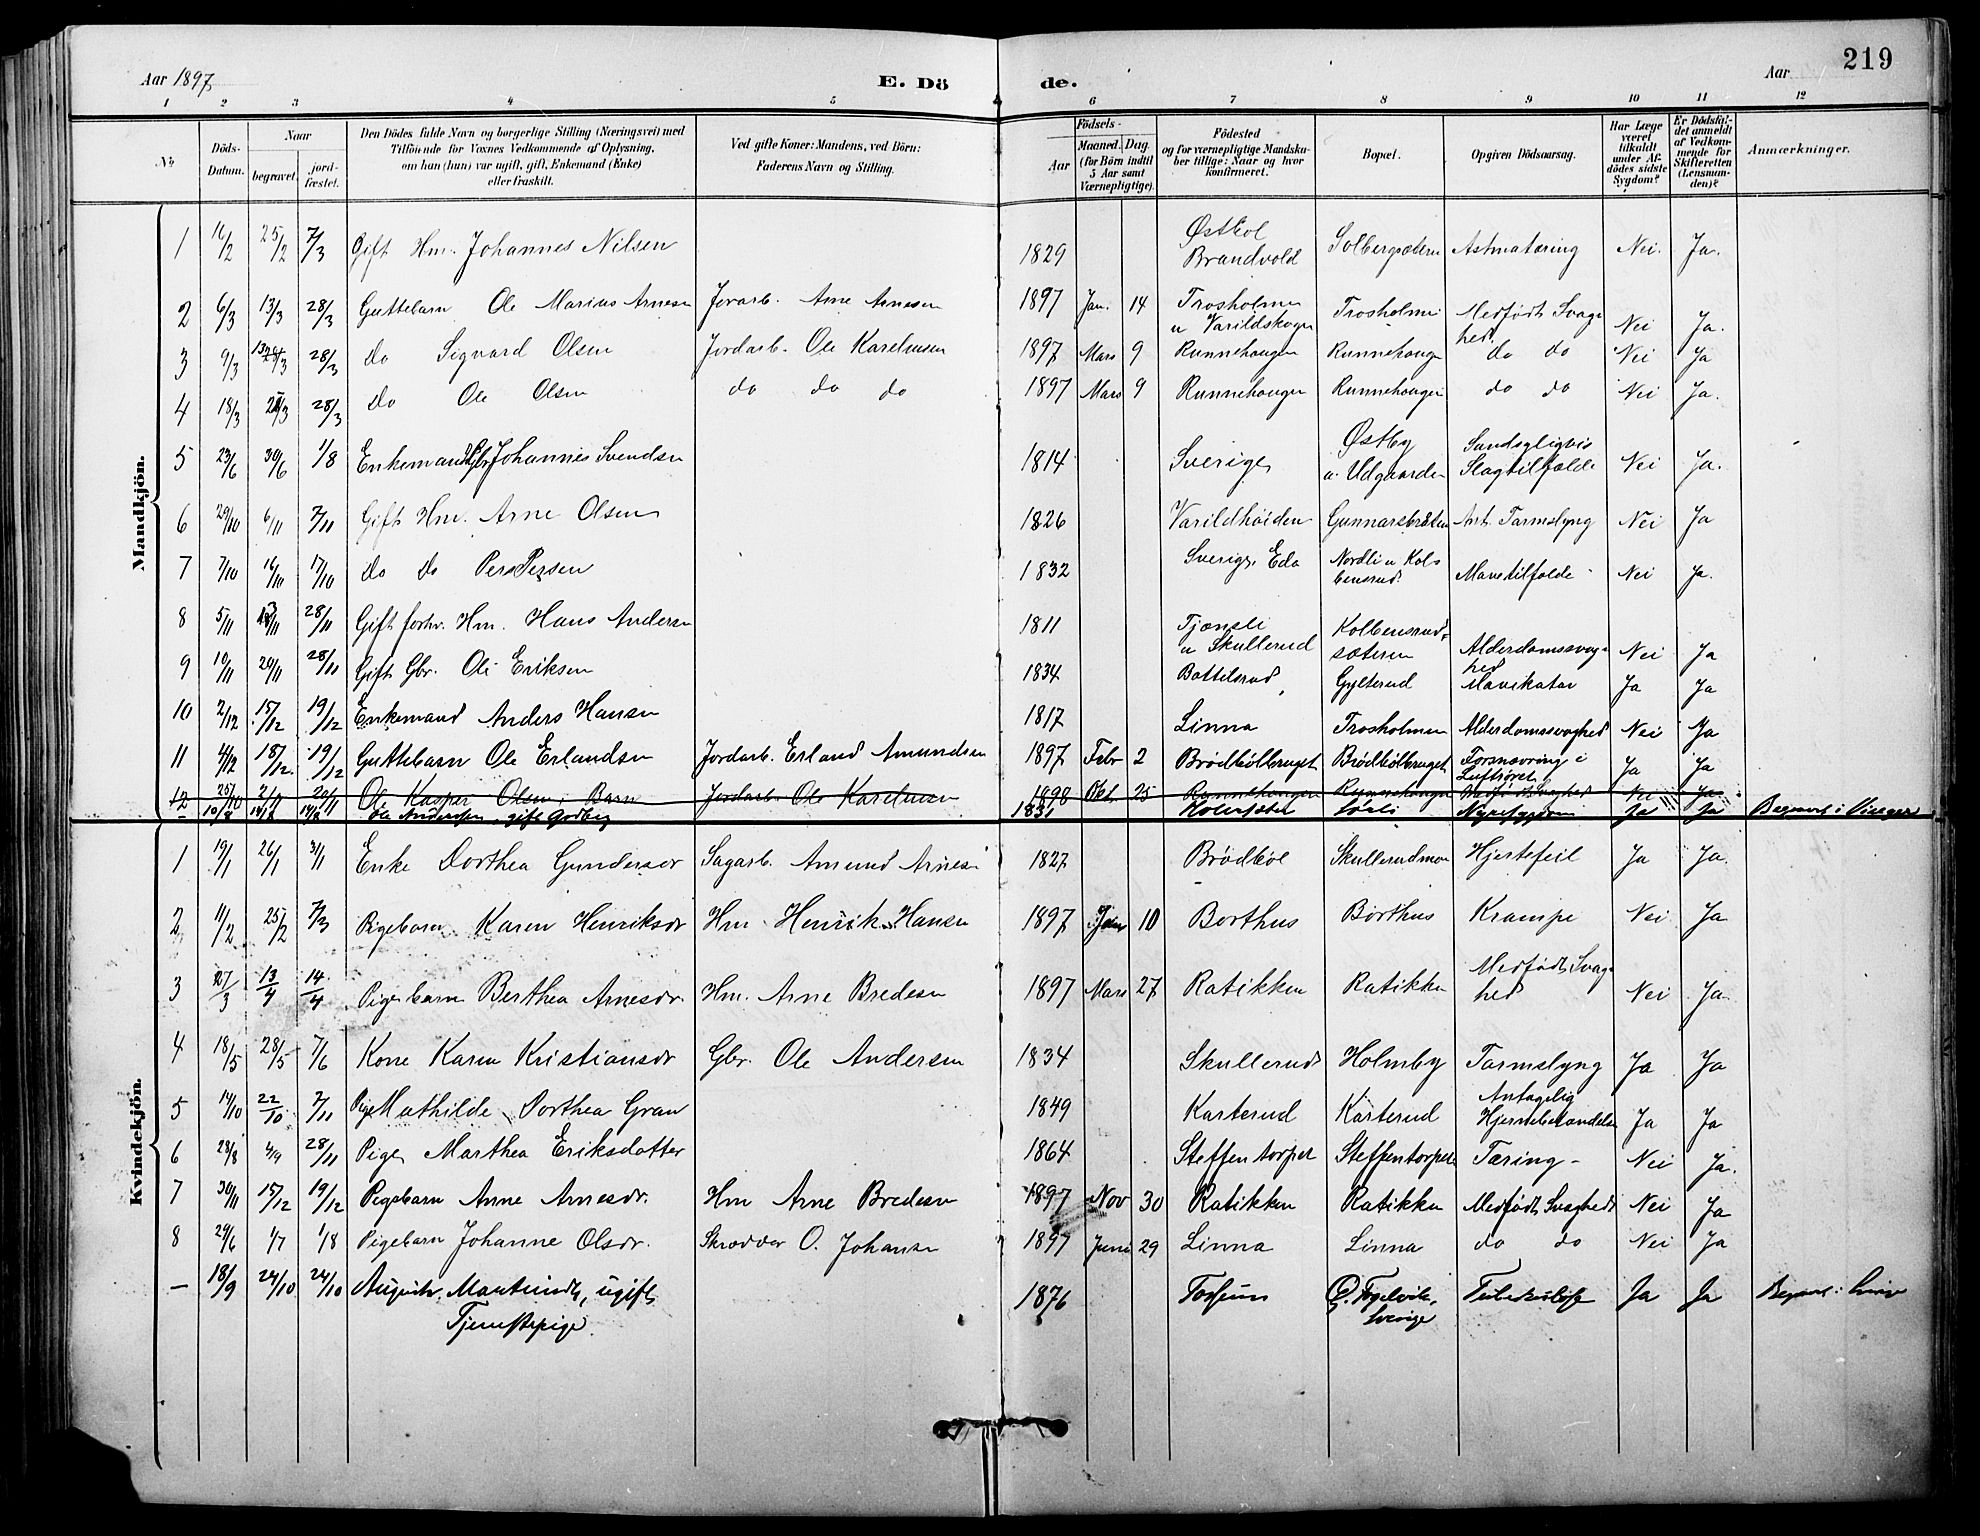 219
Aar 1897
E. Dö de.
Aar
1 2 3 4 5 6 7 8 9 10 11 12
No
Döds-Datum.
Naar
begravet.
jord-fæstet.
Den Dödes fulde Navn og borgerlige Stilling (Næringsvei) med
Tilföiende for Voxnes Vedkommende af Oplysning,
om han (hun) var ugift, gift, Enkemand (Enke)
eller fraskilt.
Ved gifte Koner: Mandens, ved Börn:
Faderens Navn og Stilling.
Födsels-
Aar
Maaned. Dag.
(for Börn indtil 5 Aar samt Værnepligtige).
Födested
og for værnepligtige Mandskaber tillige: Naar og hvor konfirmeret.
Bopæl.
Opgiven Dödsaarsag.
Har Læge været tilkaldt under Afdödes sidste Sygdom?
Er Dödsfaldet anmeldt af Vedkommende for Skifteretten (Lensmanden)?
Anmærkninger.
Mandkjön.
1 16/2 25/2 7/3 Gift Hm. Johannes Nilsen 1829 Østkol Brandvold Solbergsætern Astmatæring Nei. Ja.
2 6/3 13/3 28/3 Guttebarn Ole Marius Arnesen Jorarb. Arne Arnesen 1897 Jan. 14 Trosholmen u Varildskogen Trosholmen Medfødt Svaghed. Nei Ja.
3 9/3 28/3 Do Sigvard Olsen Jordarb. Ole Karelusen 1897 Mars 9 Runnehaugen Runnehaugen do do Nei Ja
4 18/3 28/3 Do Ole Olsen do do do 1897 Mars 9 Runnehaugen Runnehaugen do do Nei Ja.
5 23/6 30/6 1/8 Enkemand Gbr Johannes Svendsen 1814 Sverige Østby u. Udgaarden Sandsyligvis Slagtilfælde Nei Ja.
6 29/10 6/11 7/11 Gift Hm. Arne Olsen 1826 Varildhøiden Gunnarsbraten Ant. Tarmslyng Nei Ja
7 7/10 16/10 17/10 Do Do Per Persen 1832 Sverige, Eda Nordli u Kolbensrud Mavetilfælde Nei Ja.
8 5/11 28/11 Gift forhv. Hm. Hans Andersen 1811 Tjænsli u Skullerud Kolbensrudsæteren Alderdomssvaghed Nei Ja
9 10/11 20/11 28/11 Gift Gbr. Ole Eriksen 1834 Bottelsrud Gylterud Mavekatar Ja Ja
10 2/12 15/12 19/12 Enkemand Anders Hansen 1817 Linna Trosholmen Alderdomssvaghed Nei Ja
11 4/12 18/12. 19/12 Guttebarn Ole Erlandsen Jordarb. Erland Amundsen 1897 Febr 2 Brødbølbruget Brødbølbruget Forsnævring i Luftrøret Ja Ja
12 25/10 Ole Kasper Olsen, Barn Jordarb. Ole Karelusen 1898 Okt. 25 Runnehaugen Runnehaugen Medfødt Svaghed Nei Ja
Ole Andersen, gift Gbr 1831 Nyresygdom Ja Ja Begravet i
Kvindekjön.
1 19/1 26/1 31/1 Enke Dorthea Gundersdr Sagarb. Amund Arnesen 1827 Brødbøl Skullerudmon Hjertefeil Ja Ja.
2 11/2 25/2 7/3 Pigebarn Karen Henriksdr Hm. Henrik Hansen 1897 Jan 10 Borthus Borthus Krampe Nei Ja
3 27/3 13/4 14/4 Pigebarn Berthea Arnesdr. Hm. Arne Bredesen 1897 Mars 27 Ratikken Ratikken Medfødt Svaghed Nei Ja
4 18/5 28/5 7/6 Kone Karen Kristiansdr Gbr. Ole Andersen 1834 Skullerud Holmby Tarmslyng Ja Ja
5 14/10 22/10 7/11 Pige Mathilde Dorthea Gran 1849 Karterud Karterud Antagelig Hjernebetændelse Ja Ja
6 28/8 4/9 28/11 Pige Marthea Eriksdatter 1864 Steffentorpet Steffentorpet Tæring - Nei Ja.
7 30/11 15/12 19/12 Pigebarn Anne Arnesdr. Hm Arne Bredesen 1897 Nov 30 Ratikken Ratikken Medfødt Svaghed Nei Ja
8 29/6 4/7 1/8 Pigebarn Johanne Olsdr. Skrædder O. Johansen 1897 Juni 29 Linna Linna do do Nei Ja
— 18/9 24/10 24/10 ugift, Tjenestepige 1876 Fossum Sverige Tuberkulose Ja Ja Begravet i